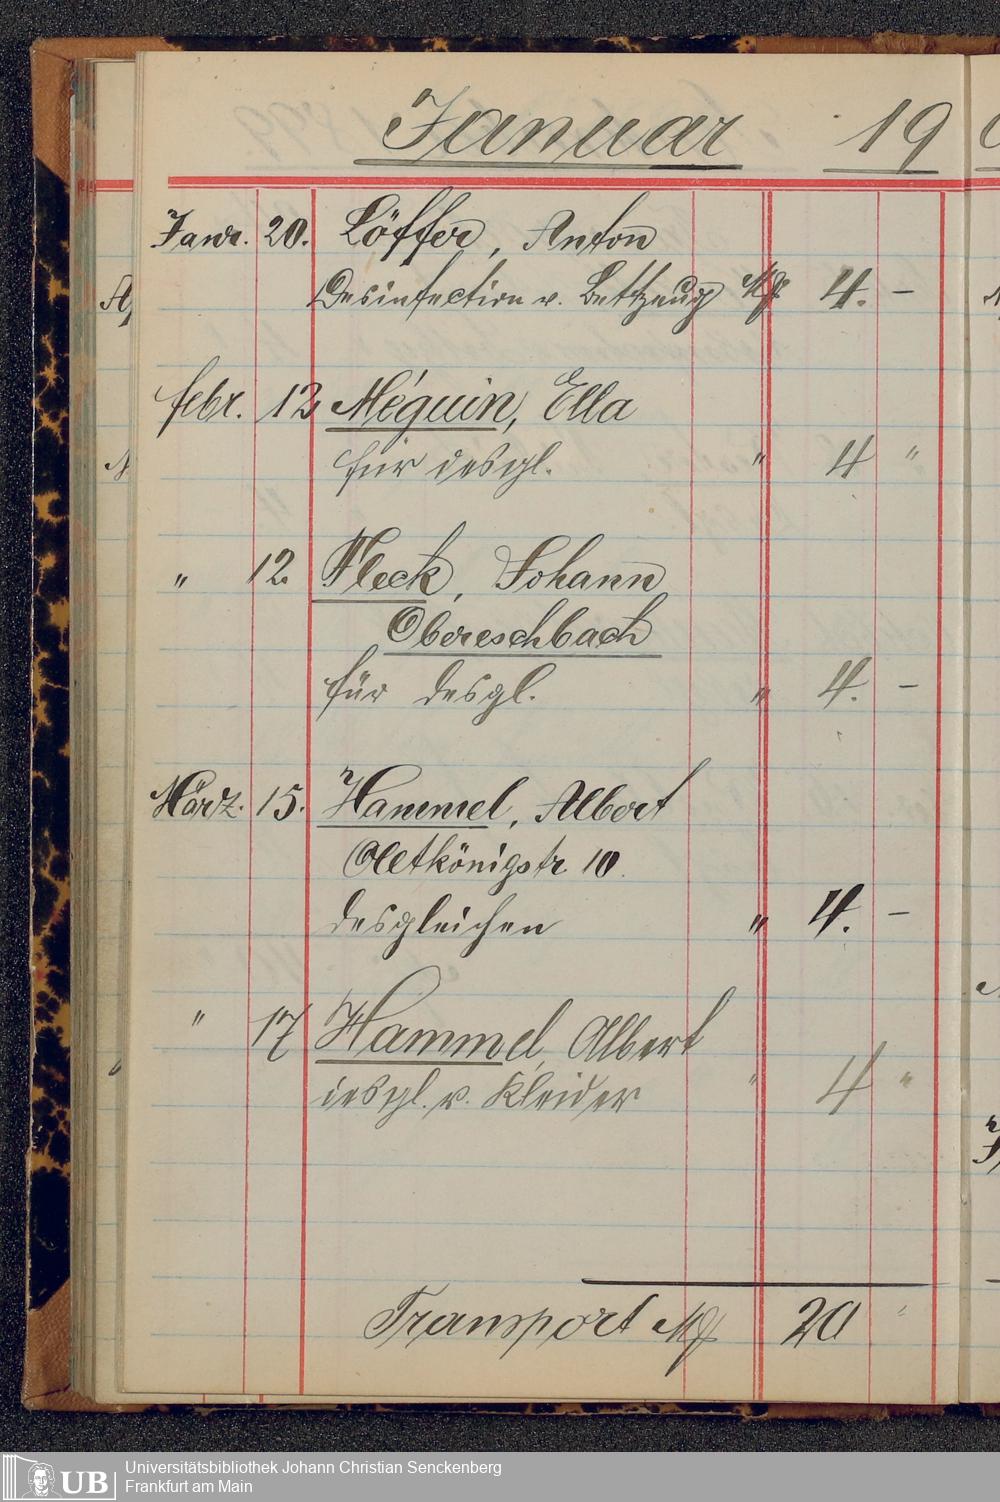 Januar 19
Janr. 20. Löffer, Anton
Desinfection v. Bettzeug Mk 4. –
febr. 12 Méguin, Ella
für desgl. " 4 "
" 12. Fleck, Johann
Obereschbach
für desgl. " 4. –
März. 15. Hammel, Albert
Altkönigstr 10.
desgleichen " 4. –
" 17 Hammel, Albert
desgl. v. Kleider " 4 "
Transport Mk 20 "
UB
Universitätsbibliothek Johann Christian Senckenberg
Frankfurt am Main